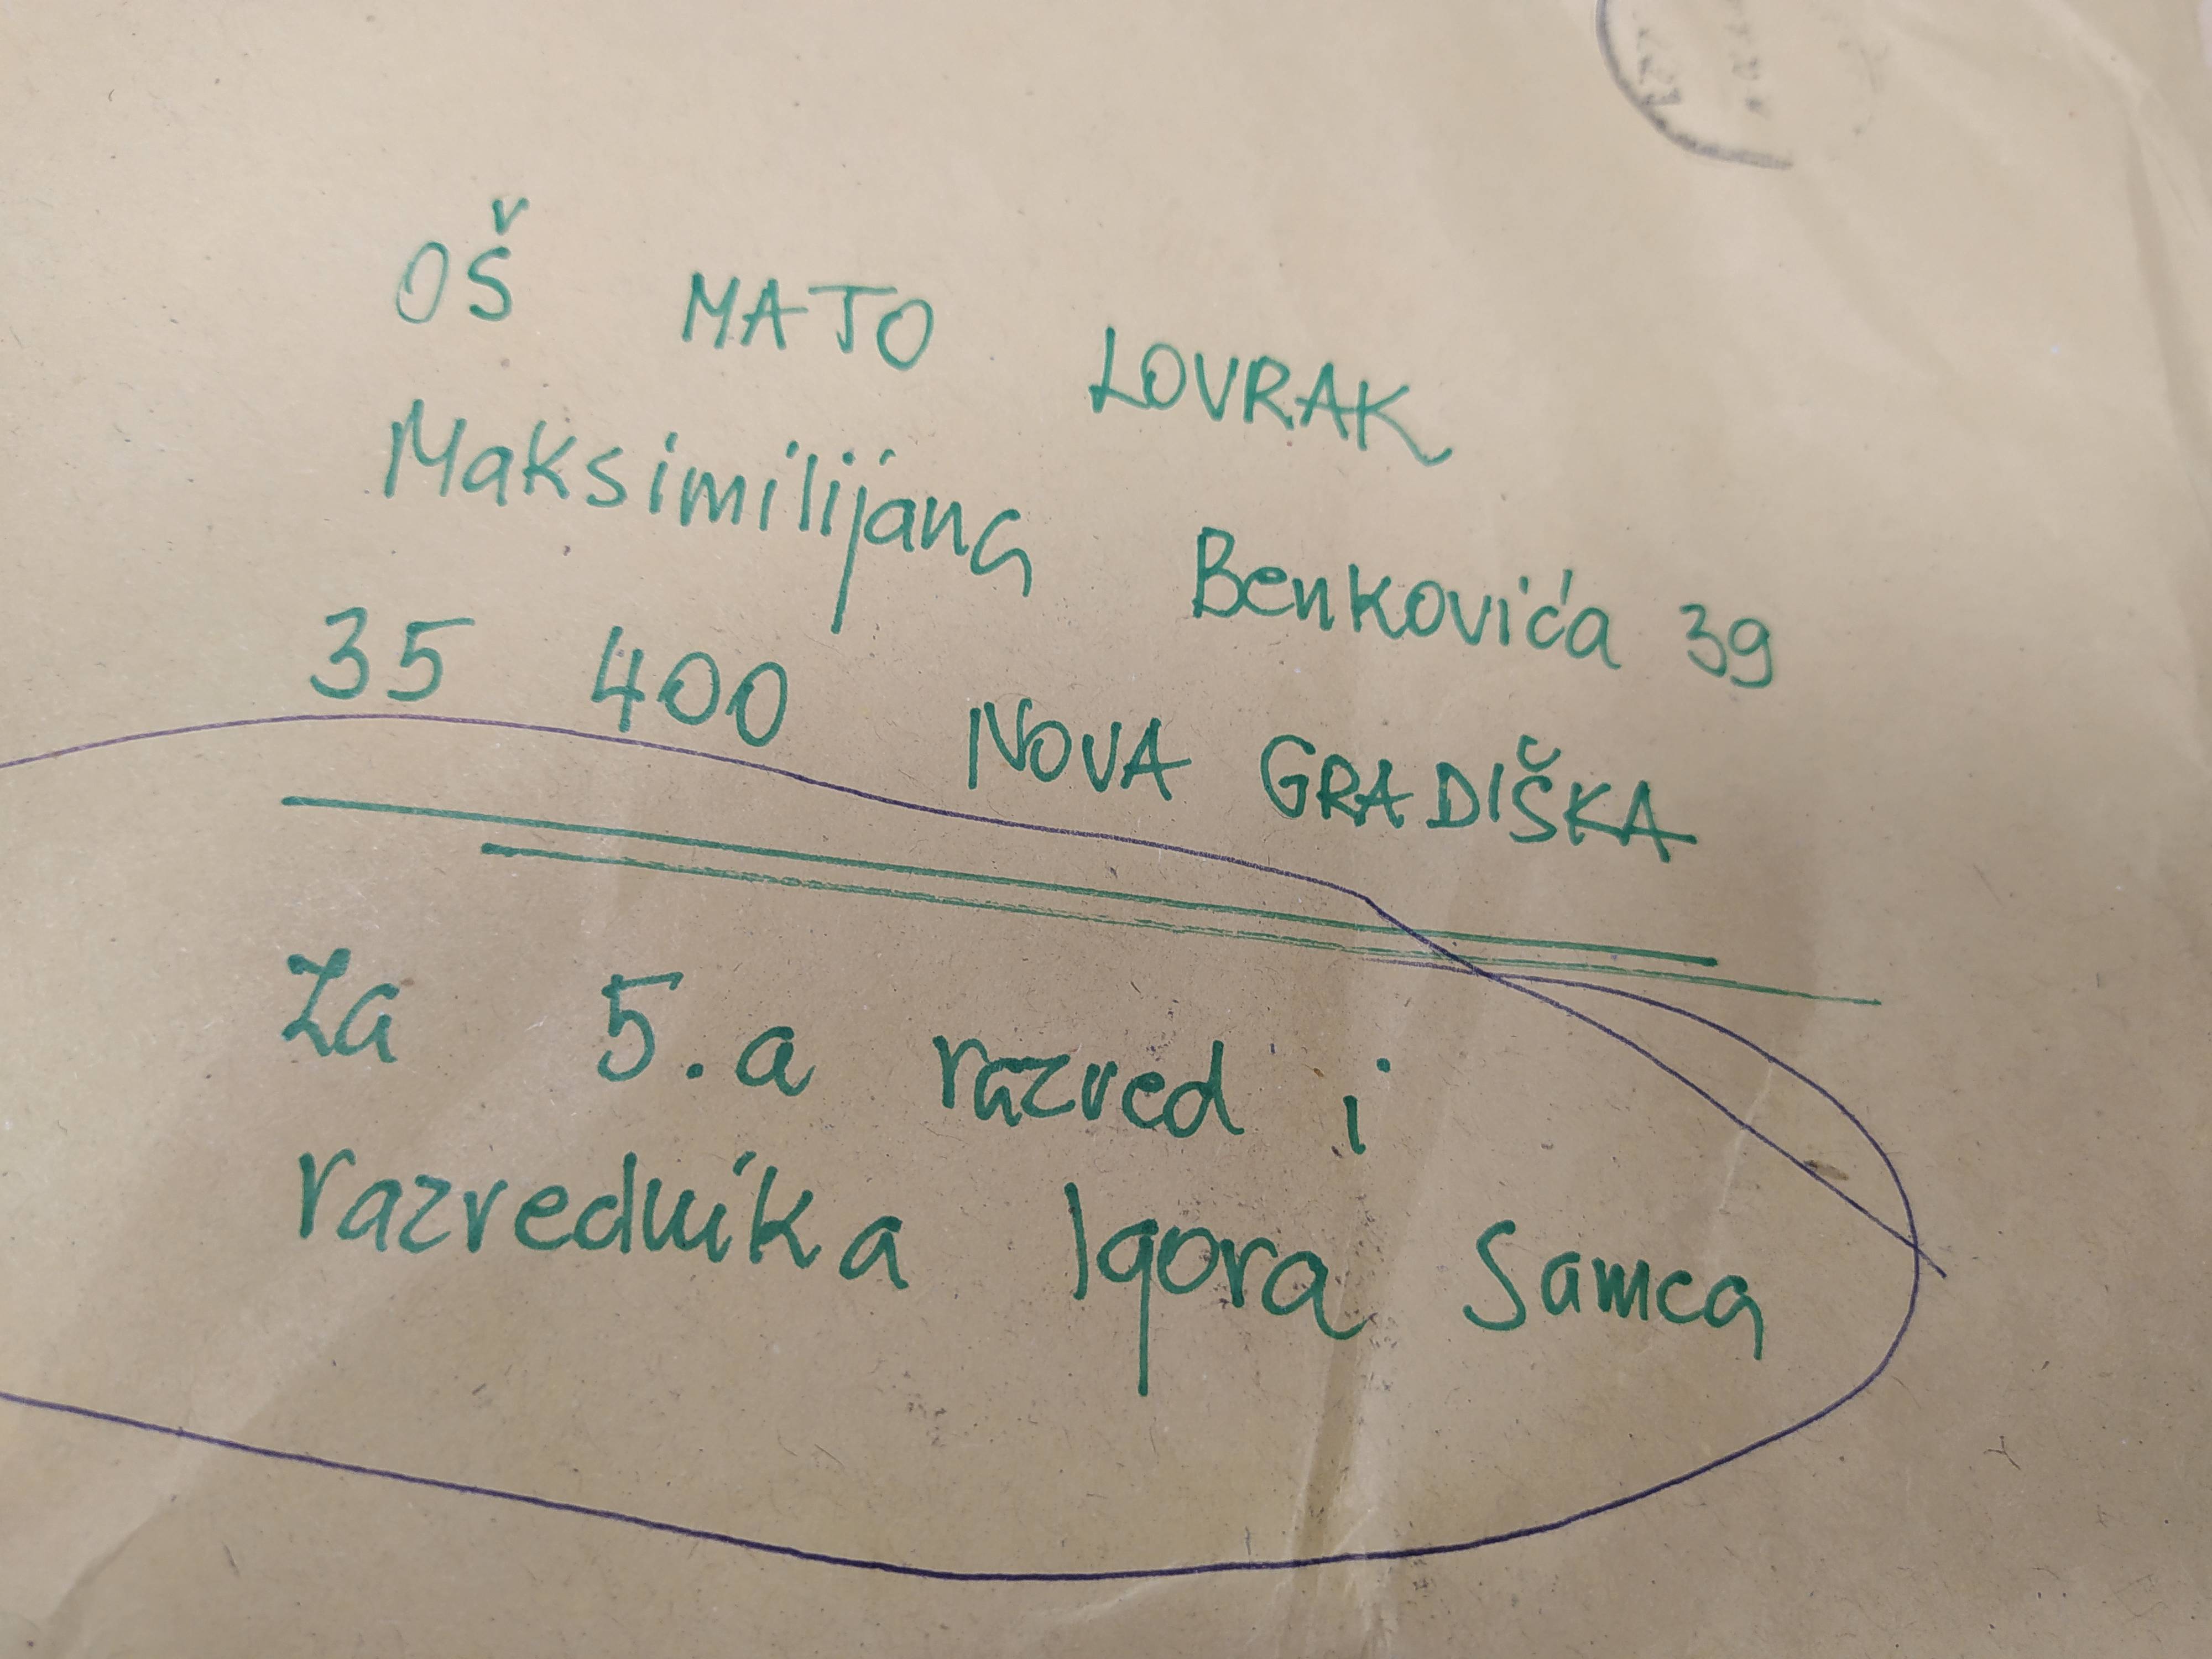 OŠ MATO LOVRAK
Maksimilijana Benkovića 39
35 400 NOVA GRADIŠKA
Za 5.a razred i
razrednika Igora Samca